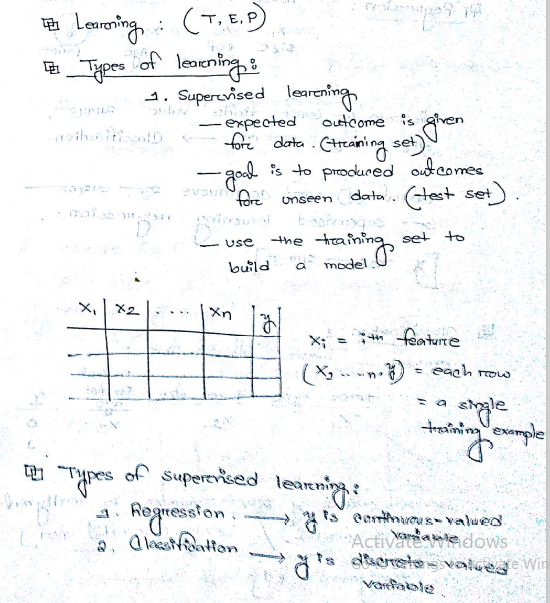 Learning : (T, E, P)
Types of learning :
1. Supervised learning
— expected outcome is given
for data. (training set)
— goal is to produced outcomes
for unseen data. (test set).
— use the training set to
build a model.
X1 X2 .... Xn y
Xi = ith feature
= each row
= a single
training example
Types of supervised learning :
1. Regression. → y is continuous-valued
variable
2. Classification → y is discrete-valued
variable.
Activate Windows